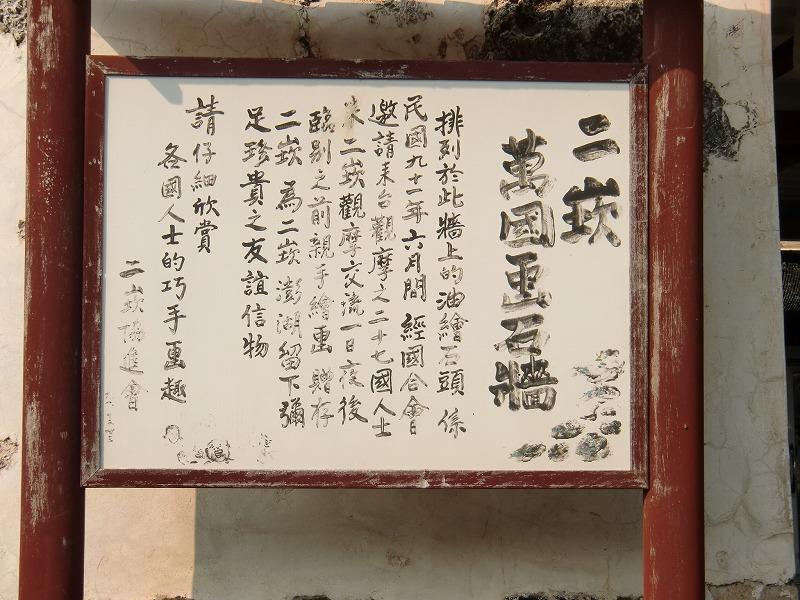 二崁
萬國画石牆
排列於此牆上的油繪石頭係
民國九十一年六月間經國合會
邀請来台觀摩之二十七國人士
來二崁觀摩交流一日夜後
臨别之前親手繪画贈存
二崁為二崁澎湖留下彌
足珍貴之友誼信物
請仔細欣賞
各國人士的巧手画趣
二崁協進會